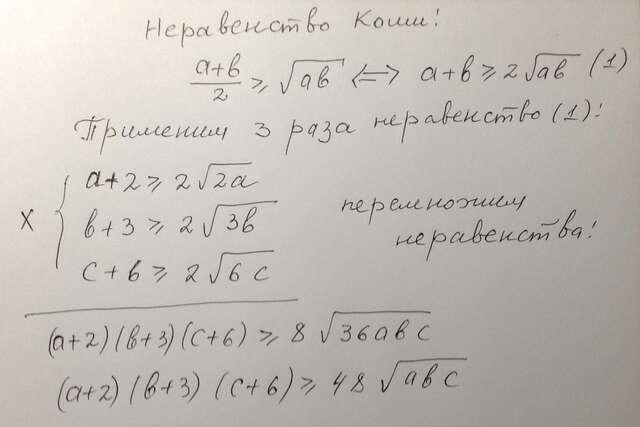 Неравенство Коши:
(a+b)/2 ≥ √(ab) ⟺ a+b ≥ 2√(ab) (1)
Применим 3 раза неравенство (1):
a+2 ≥ 2√(2a)
x { b+3 ≥ 2√(3b) перемножим
неравенства!
c+6 ≥ 2√(6c)
(a+2)(b+3)(c+6) ≥ 8√(36abc)
(a+2)(b+3)(c+6) ≥ 48√(abc)